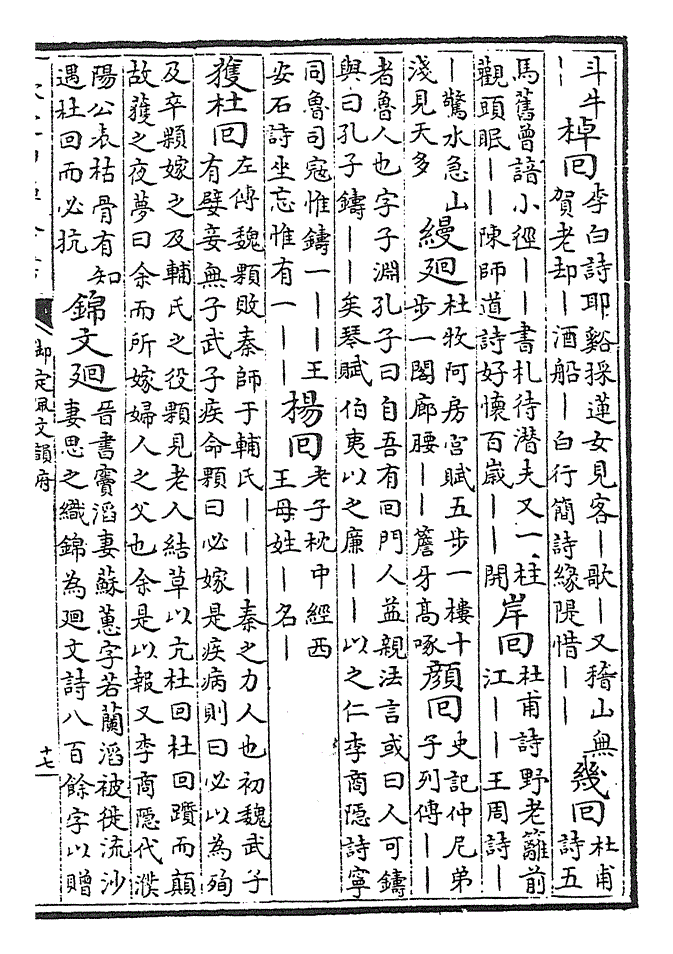 斗牛
｜｜
棹回
李白詩耶谿採蓮女見客｜歌｜又稽山無
賀老却｜酒船｜白行簡詩緣隄惜｜｜
幾回
杜甫
詩五
馬舊曾諳小徑｜｜書札待潛夫又一柱
觀頭眠｜｜陳師道詩好懷百歲｜｜開
岸回
杜甫詩野老籬前
江｜｜王周詩｜
｜驚水急山
淺見天多
縵廻
杜牧阿房宮賦五步一樓十
步一閣廊腰｜｜簷牙高啄
顏回
史記仲尼弟
子列傳｜｜
者魯人也字子淵孔子曰自吾有回門人益親法言或曰人可鑄
與曰孔子鑄｜｜矣琴賦伯夷以之廉｜｜以之仁李商隱詩寧
同魯司寇惟鑄一｜｜｜王
安石詩坐忘惟有一｜｜｜
楊回
老子枕中經西
王母姓｜名｜
獲杜回
左傳魏顆敗秦師于輔氏｜｜｜秦之力人也初魏武子
有嬖妾無子武子疾命顆曰必嫁是疾病則曰必以為殉
及卒顆嫁之及輔氏之役顆見老人結草以亢杜回杜回躓而顛
故獲之夜夢曰余而所嫁婦人之父也余是以報又李商隱代濮
陽公表枯骨有知
遇杜回而必抗
錦文廻
晉書竇滔妻蘇蕙字若蘭滔被徙流沙
妻思之織錦為廻文詩八百餘字以贈
御定佩文韻府
十七